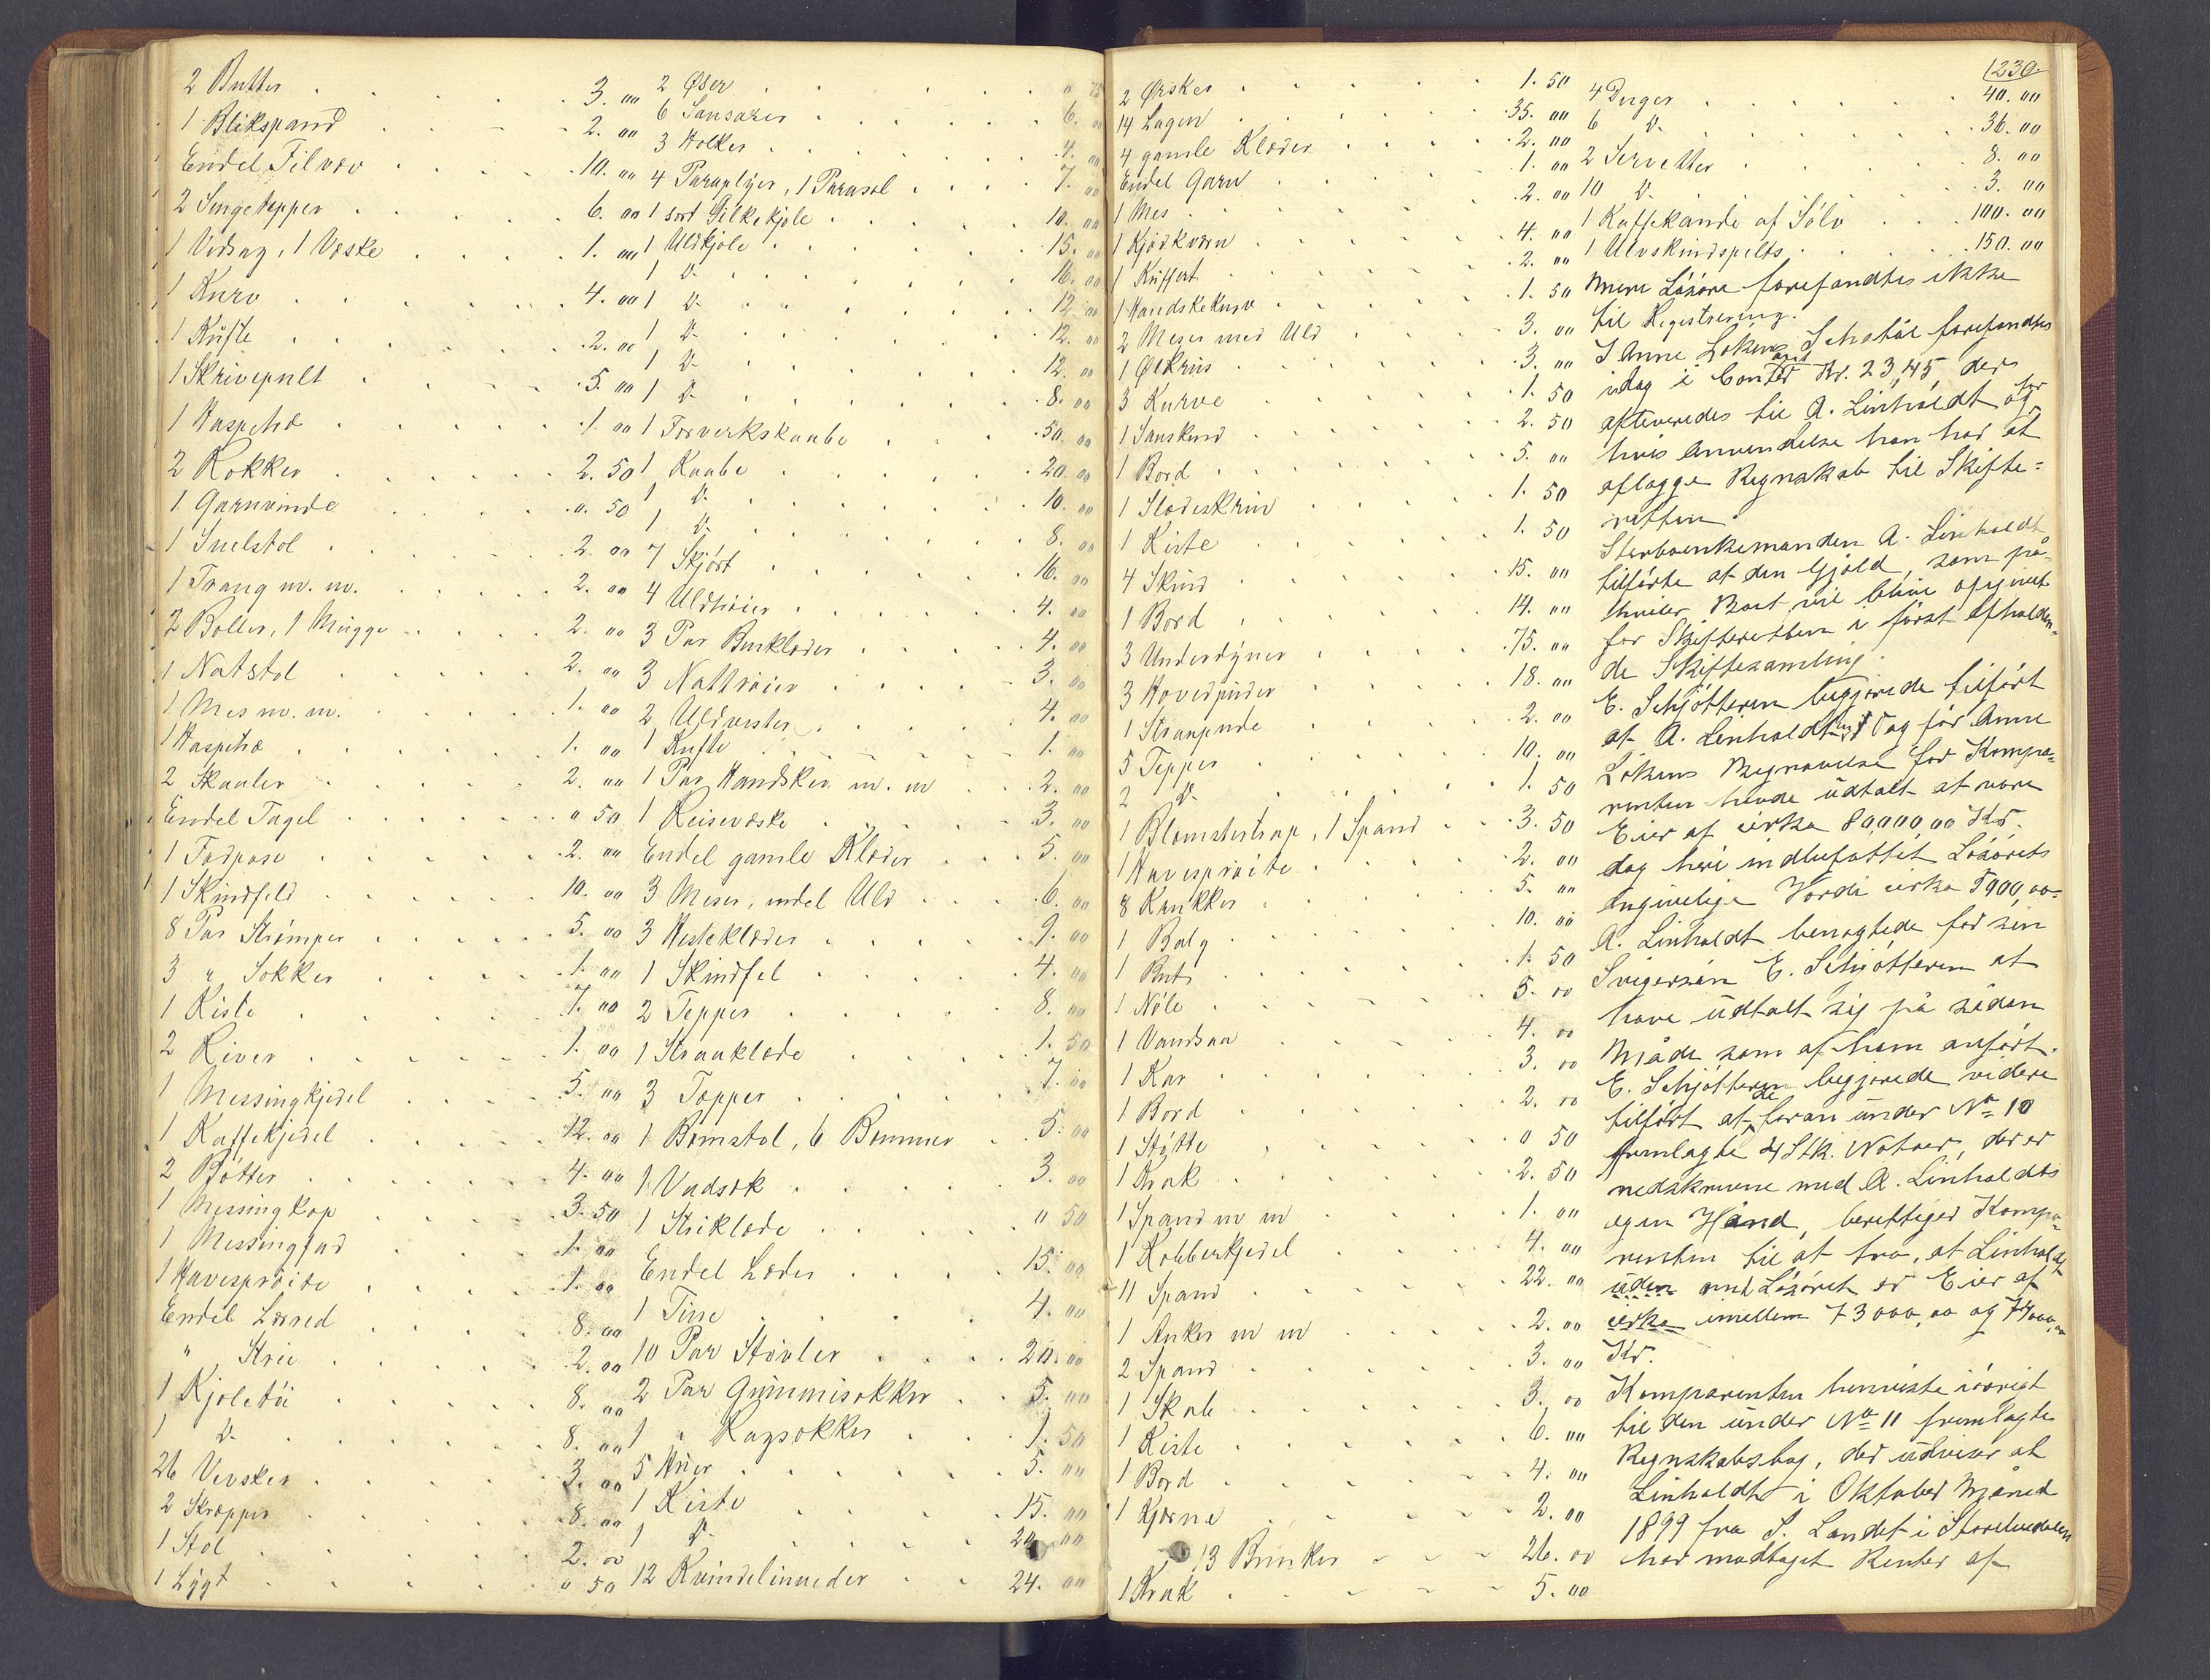 2 Butter . . . . 3. 00
1 Blikspand . . . . 2. 00
Endel Filvæv . . . . 10. 00
2 Sengetepper . . . . 6. 00
1 Vedsag, 1 Væske . . . . 1. 00
1 Kurv . . . . 4. 00
1 Kufte . . . . 2. 00
1 Skrivepult . . . . 5. 00
1 Haspetræ . . . . 1. 00
2 Rokker . . . . 2. 50
1 Garnvinde . . . . 0. 50
1 Snelstol . . . . 2. 00
1 Traug m. m. . . . . 2. 00
2 Boller, 1 Mugge . . . . 2. 00
1 Natstol . . . . 2. 00
1 Mes m. m. . . . . 1. 00
1 Haspetræ . . . . 1. 00
2 Skauler . . . . 2. 00
Endel Tagel . . . . " 50
1 Fodpose . . . . 2. 00
1 Skindfeld . . . . 10. 00
8 Par Strømper . . . . 5. 00
3 " Sokker . . . . 1. 00
1 Kiste . . . . 7. 00
2 River . . . . 1. 00
1 Messingkjedel . . . . 5. 00
1 Kaffekjedel . . . . 12. 00
2 Bøtter . . . . 4. 00
1 Messingkop . . . . 3. 50
1 Messingfad . . . . 1. 00
1 Havesprøite . . . . 1. 00
Endel Lærred . . . . 8. 00
" Strie . . . . 2. 00
1 Kjoletøi . . . . 8. 00
1 D. . . . . 8. 00
26 Versker . . . . 3. 00
2 Skræpper . . . . 8. 00
1 Stol . . . . 2. 00
1 Lygt . . . . " 50
2 Øser . . . . " 75
6 Sansarer . . . . 6. 00
3 Holker . . . . 4. 00
4 Paraplyer, 1 Parasol . . . . 7. 00
1 sort Silkekjole . . . . 10. 00
1 Uldkjole . . . . 15. 00
1 D. . . . . 16. 00
1 D. . . . . 12. 00
1 D. . . . . 12. 00
1 D. . . . . 12. 00
1 D. . . . . 8. 00
1 Forverkskaabe . . . . 50. 00
1 Kaabe . . . . 20. 00
1 D. . . . . 10. 00
1 D. . . . . 8. 00
7 Skjørt . . . . 16. 00
4 Uldtrøier . . . . 4. 00
3 Par Benklæder . . . . 4. 00
3 Nattrøier . . . . 3. 00
2 Uldvester . . . . 4. 00
1 Kufte . . . . 1. 00
1 Par Handsker m. m . . 2. 00
1 Reisevæske . . . . 3. 00
Endel gamle Klæder . . . 5. 00
3 Meser, endel Uld . . . 6. 00
3 Hesteklæder . . . . 9. 00
1 Skindfel . . . . 4. 00
2 Tepper . . . . 8. 00
1 Straaklæde . . . . 1. 50
3 Tepper . . . . 7. 00
1 Bomstol, 6 Bommer . 5. 00
1 Vadsæk . . . . 3. 00
1 Striklæde . . . . " 50
Endel Læder . . . . 15. 00
1 Tine . . . . 4. 00
10 Par Støvler . . . . 20. 00
2 Par Gummisokker . . 5. 00
1 " Ragsokker . . 1. 50
5 Huer . . . . 5. 00
1 Kiste . . . . 15. 00
1 D. . . . . 20. 00
12 Kvindelinneder . . 24. 00
2 Øsker . . . . 1. 50
14 Lagen . . . . 35. 00
4 gamle Klæder . . . . 2. 00
Endel Garn . . . . 1. 00
1 Mes . . . . 2. 00
1 Kjødkværn . . . . 4. 00
1 Kuffert . . . . 2. 00
1 Handskekurv . . . . 1. 50
2 Meser med Uld . . . . 3. 00
1 Ølkrus . . . . 3. 00
3 Kurve . . . . 1. 50
1 Saueskind . . . . 2. 50
1 Bord . . . . 5. 00
1 Slædeskrin . . . . 1. 50
1 Kiste . . . . 1. 50
4 Skind . . . . 15. 00
1 Bord . . . . 14. 00
3 Underdyner . . . . 75. 00
3 Hovedpuder . . . . 18. 00
1 Straapude . . . . 2. 00
5 Tepper . . . . 10. 00
2 D. . . . . 1. 50
1 Blomstertrap, 1 Spand . . 3. 50
1 Havesprøite . . . . 2. 00
8 Krukker . . . . 5. 00
1 Balg . . . . 10. 00
1 But . . . . 1. 50
1 Nøle . . . . 5. 00
1 Vandsaa . . . . 4. 00
1 Kar . . . . 3. 00
1 Bord . . . . 2. 00
1 Støtte . . . . 0 50
1 Krak . . . . 2. 50
1 Spand m m . . . . 1. 00
1 Kobberkjedel . . . . 4. 00
11 Spand . . . . 22. 00
1 Anker m m . . . . 2. 00
2 Spand . . . . 3. 00
1 Skab . . . . 3. 00
1 Kiste . . . . 6. 00
1 Bord . . . . 4. 00
1 Kjærne . . . . 2. 00
13 Brukker . . . 26. 00
1 Krak . . . . 5. 00
1230.
4 Duger . . . . 40. 00
6 D. . . . . 36. 00
2 Servetter . . . . 8. 00
10 D. . . . . 3. 00
1 Kaffekande af Sølv . . . 100. 00
1 Ulvskindspelts . . . . 150. 00
Mere Løsøre forefandtes ikke
til Registrering.
I Anne Løkens Schatol forefandtes
idag i Contant Kr. 23,45, der
afleveredes til A. Linholdt og for
hvis Anvendelse han har at
aflægge Regnskab til Skifte-
retten.
Sterboenkemanden A. Linholdt
tilførte at den Gjæld, som på-
hviler Boet vil blive opgivet
for Skifteretten i først afholden-
de Skiftesamling.
E. Schjøtteren begjærede tilført
at A. Linholdt en Dag før Anne
Løkens Begravelse for Kompa-
renten havde udtalt at være
Eier af cirka 80,000,00 Kr.
dog heri indbefattet Løsørets
angivelige Værdi cirka 5000,00.
A. Linholdt benægtede for sin
Svigersøn E. Schjøtteren at
have udtalt sig på sådan
Måde som af ham anført.
E. Schjøtteren begjærede videre
tilført at de foran under No 10
fremlagte 4 Stk. Notaer, der er
nedskrevne med A. Linholdts
egen Hånd, berettiger Kompa-
renten til at tro, at Linholdt
uden om Løsøret er Eier af
cirka imellem 73000,00 og 74000,00
Kr.
Komparenten henviste iøvrigt
til den under No 11 fremlagte
Regnskabsbog, der udviser at
Linholdt i Oktober Måned
1899 fra S. Landet i Storelvedalen
har modtaget Renter af